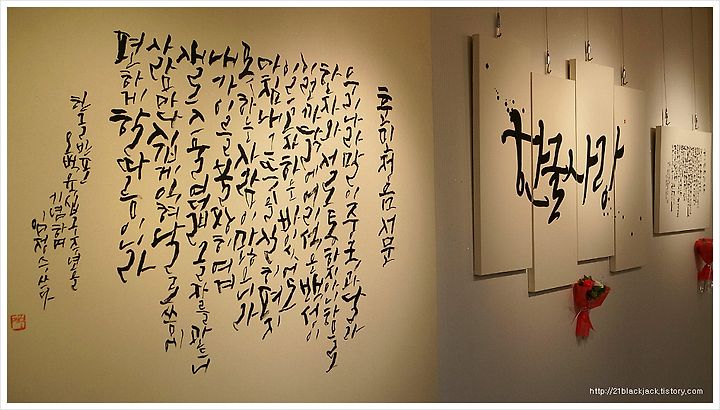 훈민정음 서문
우리나라 말이 중국과 달라
한자와 서로 통하지 아니함으로
이런 까닭에 어리석은 백성이
이르고자 하는 바 있어도
마침내 그 뜻을 실어 펴지
못하는 사람이 많으니라
내가 이를 불쌍히 여겨
새로 스물여덟 글자를 만드니
사람마다 쉽게 익혀 날로 쓰메
편하게 할 따름이니라
한글 반포
기념하며
한글사랑
http://21blackjack.tistory.com